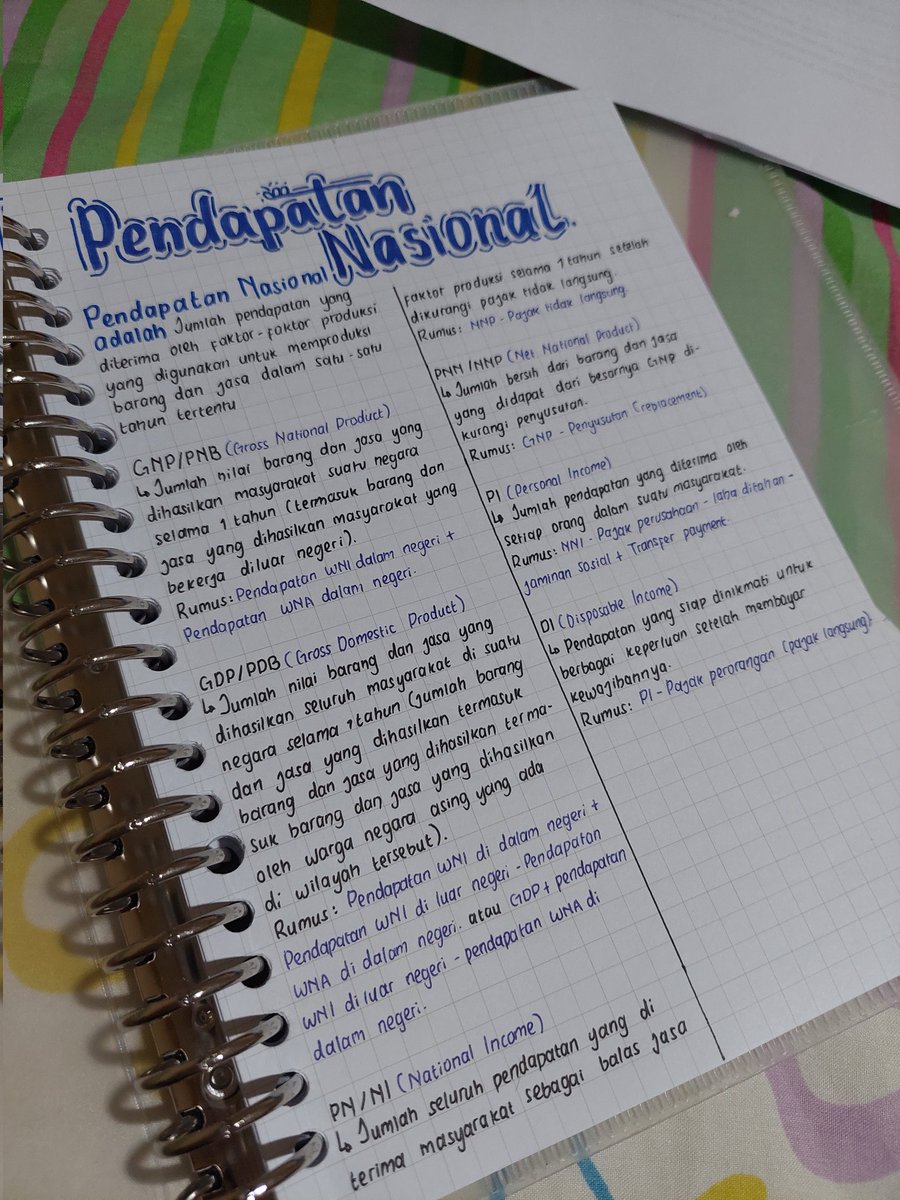 Pendapatan
Nasional.
Pendapatan Nasional
adalah Jumlah pendapatan yang
diterima oleh faktor-faktor produksi
yang digunakan untuk memproduksi
barang dan jasa dalam satu-satu
tahun tertentu
GNP/PNB (Gross National Product)
↳ Jumlah nilai barang dan jasa yang
dihasilkan masyarakat suatu negara
selama 1 tahun (termasuk barang dan
jasa yang dihasilkan masyarakat yang
bekerja diluar negeri).
Rumus: Pendapatan WNI dalam negeri +
Pendapatan WNA dalam negeri.
GDP/PDB (Gross Domestic Product)
↳ Jumlah nilai barang dan jasa yang
dihasilkan seluruh masyarakat di suatu
negara selama 1 tahun (jumlah barang
dan jasa yang dihasilkan termasuk
barang dan jasa yang dihasilkan terma-
suk barang dan jasa yang dihasilkan
oleh warga negara asing yang ada
di wilayah tersebut).
Rumus: Pendapatan WNI di dalam negeri +
Pendapatan WNI di luar negeri - Pendapatan
WNA di dalam negeri. atau GDP + pendapatan
WNI di luar negeri - pendapatan WNA di
dalam negeri.
PN/NI (National Income)
↳ Jumlah seluruh pendapatan yang di
terima masyarakat sebagai balas jasa
faktor produksi selama 1 tahun setelah
dikurangi pajak tidak langsung.
Rumus: NNP - Pajak tidak langsung.
PNN/NNP (Net National Product)
↳ Jumlah bersih dari barang dan jasa
yang didapat dari besarnya GNP di-
kurangi penyusutan.
Rumus: GNP - Penyusutan (replacement)
PI (Personal Income)
↳ Jumlah pendapatan yang diterima oleh
setiap orang dalam suatu masyarakat.
Rumus: NNI - Pajak perusahaan - laba ditahan -
jaminan sosial + Transper payment.
DI (Disposable Income)
↳ Pendapatan yang siap dinikmati untuk
berbagai keperluan setelah membayar
kewajibannya.
Rumus: PI - Pajak perorangan (pajak langsung)